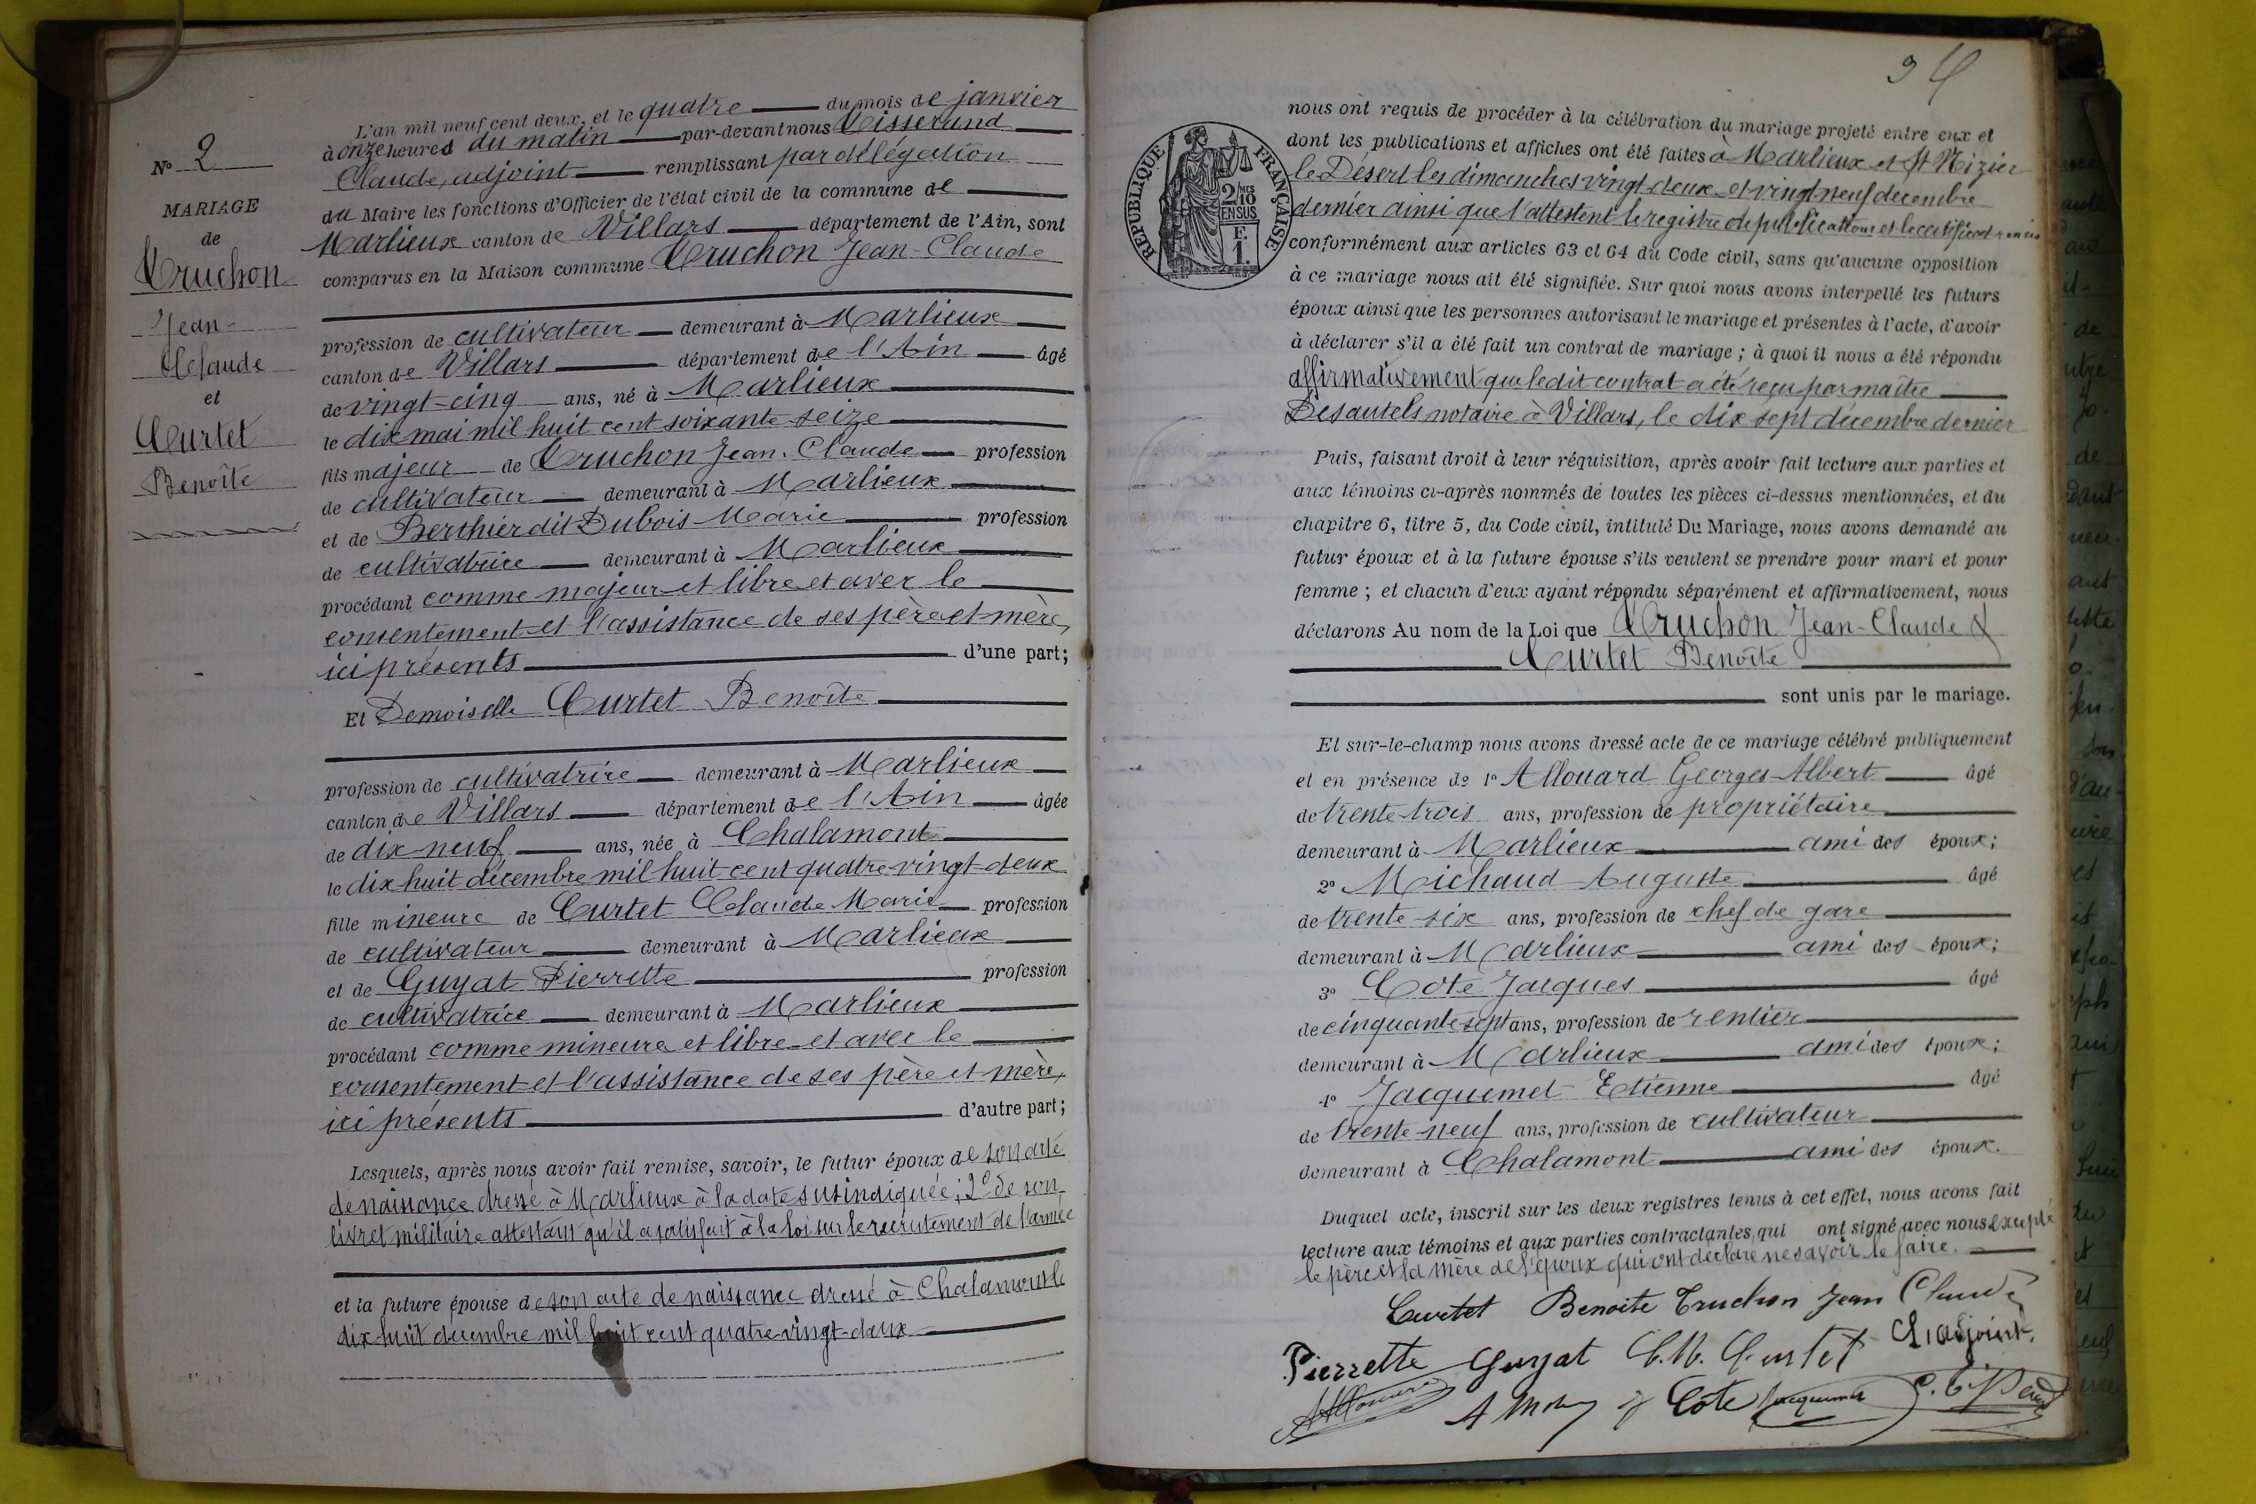 L'an mil neuf cent deux, et le quatre du mois de janvier
à onze heures du matin par-devant nous Tisserand
Claude, adjoint remplissant par délégation
du Maire les fonctions d'Officier de l'état civil de la commune de
Marlieux canton de Villars département de l'Ain, sont
comparus en la Maison commune Truchon Jean-Claude
N° 2
MARIAGE
de
Truchon
Jean-
Claude
et
Curtet
Benoîte
profession de cultivateur demeurant à Marlieux
canton de Villars département de l'Ain âgé
de vingt-cinq ans, né à Marlieux
le dix mai mil huit cent soixante-seize
fils majeur de Truchon Jean-Claude profession
de cultivateur demeurant à Marlieux
et de Berthier dit Dubois Marie profession
de cultivatrice demeurant à Marlieux
procédant comme majeur et libre et avec le
consentement et l'assistance de ses père et mère,
ici présents d'une part;
Et Demoiselle Curtet Benoîte
profession de cultivatrice demeurant à Marlieux
canton de Villars département de l'Ain âgée
de dix neuf ans, née à Chalamont
le dix huit décembre mil huit cent quatre-vingt-deux
fille mineure de Curtet Claude Marie profession
de cultivateur demeurant à Marlieux
et de Guyat Pierrette profession
de cultivatrice demeurant à Marlieux
procédant comme mineure et libre et avec le
consentement et l'assistance de ses père et mère,
ici présents d'autre part;
Lesquels, après nous avoir fait remise, savoir, le futur époux de son acte
de naissance dressé à Marlieux à la date susindiquée; 2° de son
livret militaire attestant qu'il a satisfait à la loi sur le recrutement de l'armée
et la future épouse de son acte de naissance dressé à Chalamont le
dix-huit décembre mil huit cent quatre-vingt-deux
94
RÉPUBLIQUE FRANÇAISE
2/10 EN SUS
F.
1.
nous ont requis de procéder à la célébration du mariage projeté entre eux et
dont les publications et affiches ont été faites à Marlieux et St Nizier
le Désert les dimanches vingt-deux et vingt-neuf décembre
dernier ainsi que l'attestent le registre de publications et le certificat remis
conformément aux articles 63 et 64 du Code civil, sans qu'aucune opposition
à ce mariage nous ait été signifiée. Sur quoi nous avons interpellé les futurs
époux ainsi que les personnes autorisant le mariage et présentes à l'acte, d'avoir
à déclarer s'il a été fait un contrat de mariage; à quoi il nous a été répondu
affirmativement que ledit contrat a été reçu par maître
Desautels notaire à Villars, le dix sept décembre dernier
Puis, faisant droit à leur réquisition, après avoir fait lecture aux parties et
aux témoins ci-après nommés de toutes les pièces ci-dessus mentionnées, et du
chapitre 6, titre 5, du Code civil, intitulé Du Mariage, nous avons demandé au
futur époux et à la future épouse s'ils veulent se prendre pour mari et pour
femme; et chacun d'eux ayant répondu séparément et affirmativement, nous
déclarons Au nom de la Loi que Truchon Jean-Claude &
Curtet Benoîte
sont unis par le mariage.
Et sur-le-champ nous avons dressé acte de ce mariage célébré publiquement
et en présence de 1° Allouard Georges-Albert âgé
de trente-trois ans, profession de propriétaire
demeurant à Marlieux ami des époux;
2° Michaud Auguste âgé
de trente six ans, profession de chef de gare
demeurant à Marlieux ami des époux;
3° Cote Jacques âgé
de cinquante-sept ans, profession de rentier
demeurant à Marlieux ami des époux;
4° Jacquemet Etienne âgé
de trente-neuf ans, profession de cultivateur
demeurant à Chalamont ami des époux.
Duquel acte, inscrit sur les deux registres tenus à cet effet, nous avons fait
lecture aux témoins et aux parties contractantes, qui ont signé avec nous excepté
le père et la mère de l'époux qui ont déclaré ne savoir le faire.
Curtet Benoite Truchon Jean Claude
Pierrette Guyat C. M. Curtet adjoint.
Allouard Cote Jacquemet